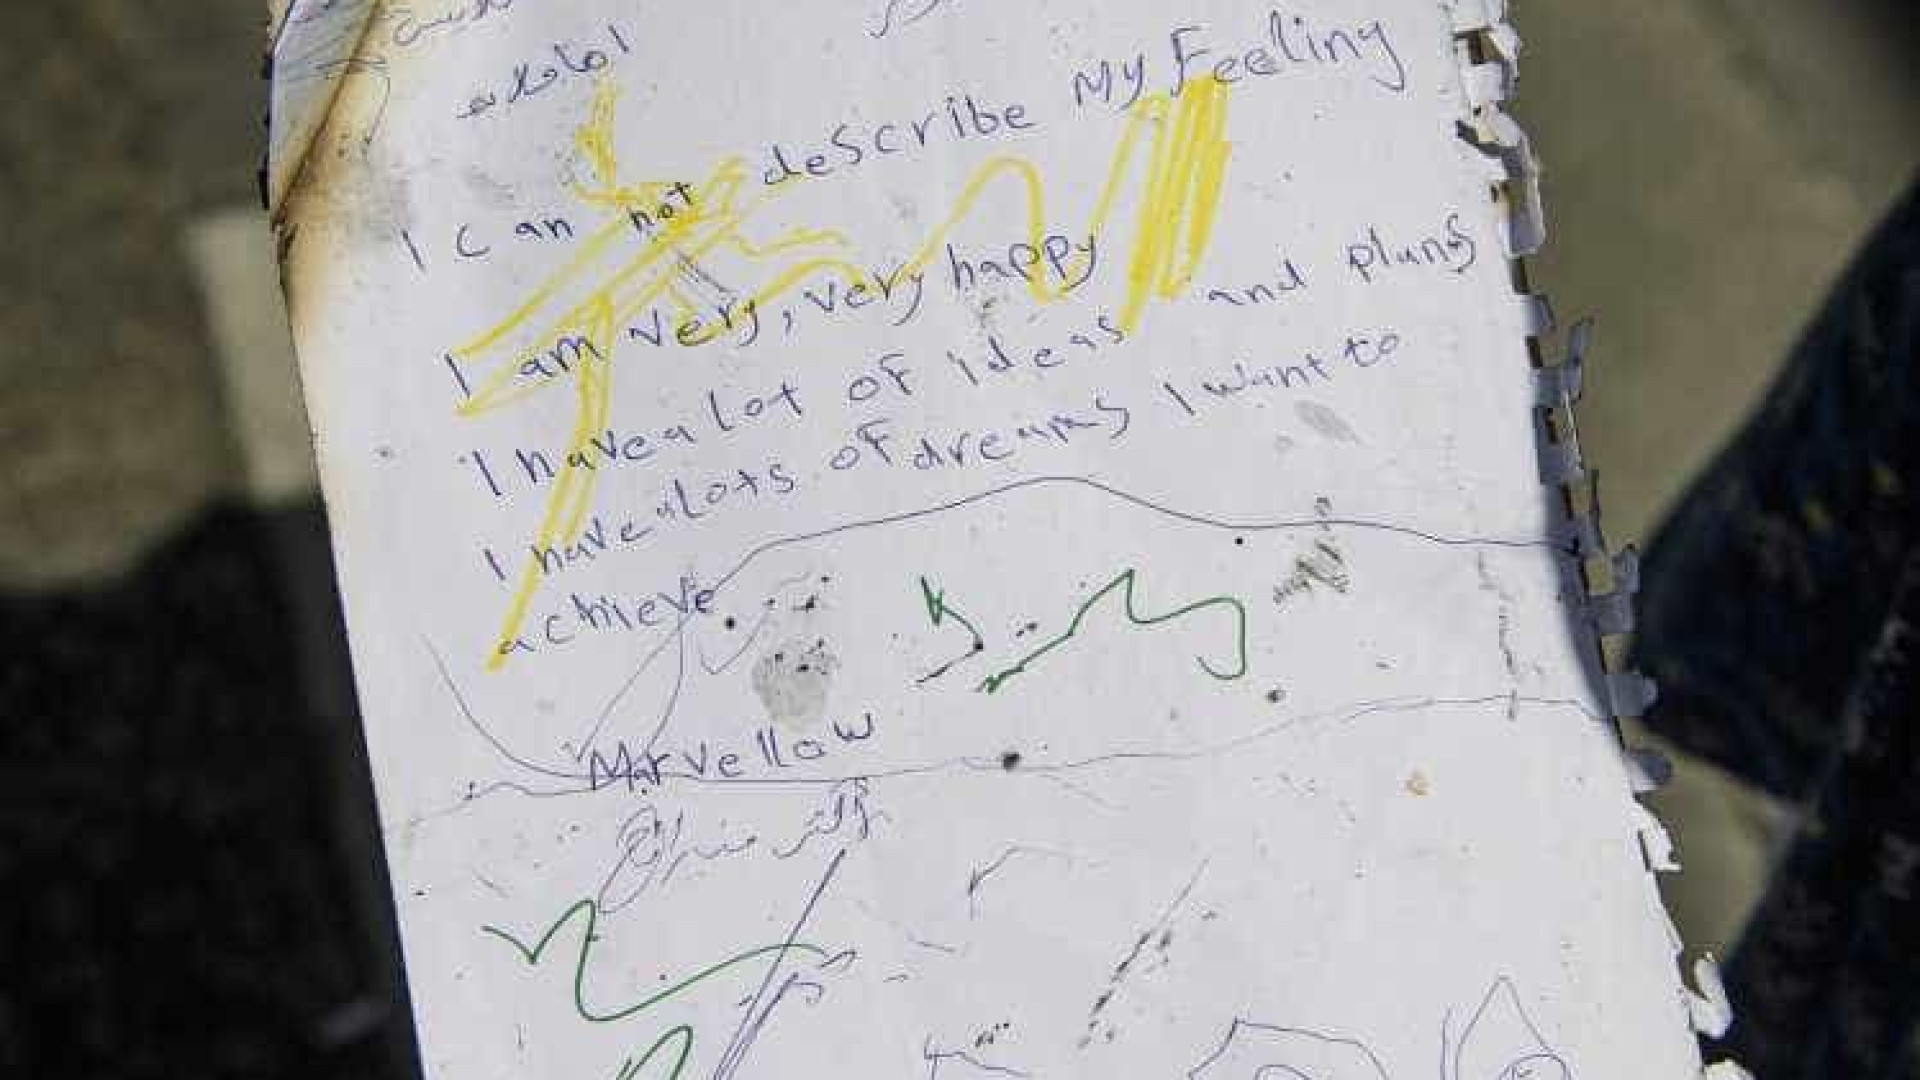 I can not describe My Feeling
I am very, very happy
I have a lot of ideas and pluns
I have alots of dreams I want to
achieve
Marvellow